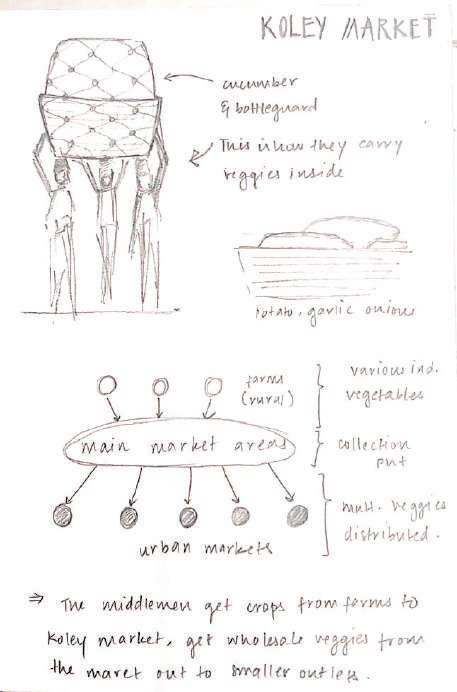 KOLEY MARKET
cucumber
& bottleguard
This is how they carry
veggies inside
potato, garlic onions
farms
(rural)
various ind.
vegetables
main market areas
collection
pnt
mult. veggies
distributed.
urban markets
⇒ The middlemen get crops from farms to
Koley market, get wholesale veggies from
the maret out to smaller outlets.